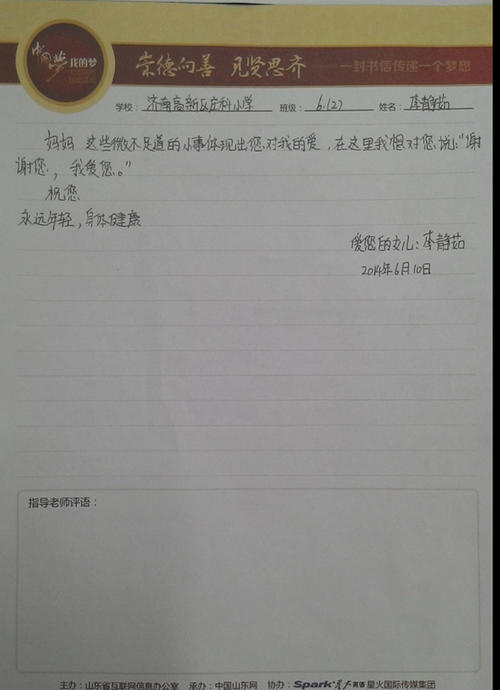 中国梦 我的梦
崇德向善 见贤思齐 一封书信传递一个梦想
学校：济南高新区庄科小学 班级：6.(2) 姓名：李静茹
妈妈 这些微不足道的小事体现出您对我的爱，在这里我想对您说："谢
谢您，我爱您。"
祝您
永远年轻，身体健康
爱您的女儿：李静茹
2014年6月10日
指导老师评语：
主办：山东省互联网信息办公室 承办：中国山东网 协办：Spark 星火英语 星火国际传媒集团